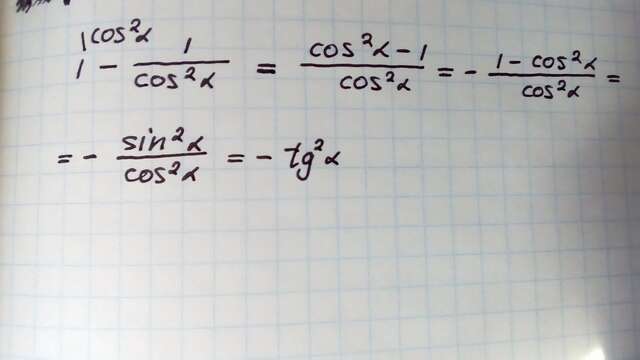 1^{cos²α} - \frac{1}{cos²α} = \frac{cos²α - 1}{cos²α} = - \frac{1 - cos²α}{cos²α} =
= - \frac{sin²α}{cos²α} = - tg²α